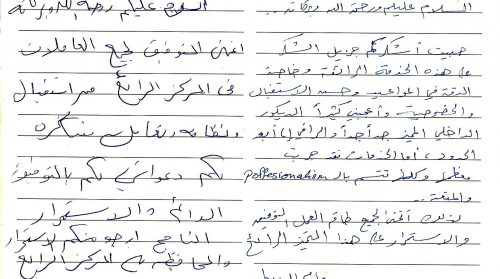 السلام عليكم ورحمة الله وبركاته...
حبيت أشكركم جزيل الشكر
على هذه الخدمة الرائعة وخاصة
الدقة في المواعيد وحسن الاستقبال
والخصوصية وأعجبني كثيراً الديكور
الداخلي المميز جداً جداً والراقي لأبعد
الحدود، أما الخدمات فقد جربت
معظمها وكلها تتسم بالـ Poffesionalism
والمتعة..
لذلك أتمنى لجميع طاقم العمل التوفيق
والاستمرار على هذا التميز الرائع
السلام عليكم ورحمة الله وبركاته
أتمنى التوفيق لجميع العاملات
في المركز الرائع من استقبال
ونظافة وتعامل
لكم دعواتي لكم بالتوفيق
الدائم والاستمرار
الناجح أرجو منكم الاستمرار
والمحافظة على المركز الرائع